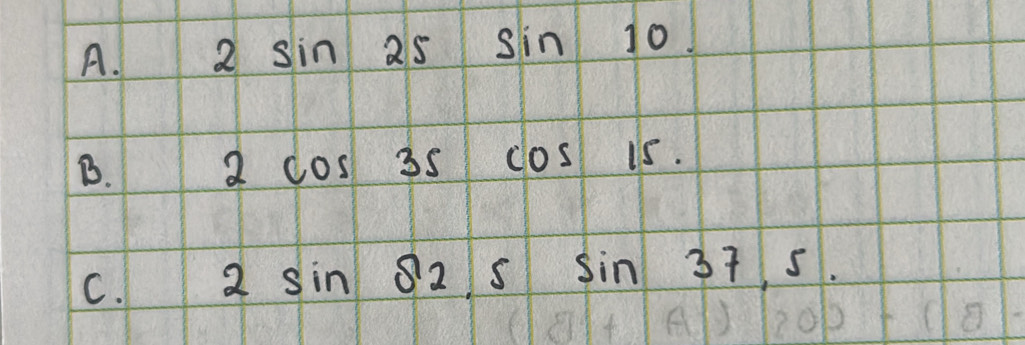 A. 2 sin 25 sin 10.
B. 2 cos 35 cos 15.
C. 2 sin 82,5 sin 37,5.